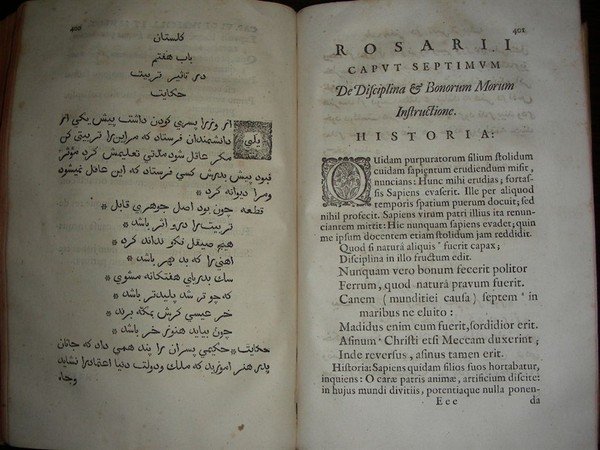 400
کلستان
باب هفتم
در تاثیر تربیت
حکایت
یکی از وزرا پسری کودن داشت پیش یکی از
دانشمندان فرستاد که مر این را تربیتی کن
مکر عاقل شود مدتی تعلیمش کرد موثر
نبود پیش پدرش کسی فرستاد که این عاقل نمیشود
ومرا دیوانه کرد
قطعه چون بود اصل جوهری قابل *
تربیترا درو اثر باشد *
هیچ صیقل نکو نداند کرد *
اهنی را که بد کهر باشد *
سك بدریای هفتکانه مشوی *
که چو تر شد پلیدتر باشد *
خر عیسی کرش بمکه برند *
چون بیاید هنوز خر باشد *
حکایت * حکیمی پسران را پند همی داد که جانان
پدر هنر اموزید که ملك ودولت دنیا اعتماد را نشاید
وجاه
401
ROSARII
CAPVT SEPTIMVM
De Disciplina & Bonorum Morum
Instructione.
HISTORIA:
QUidam purpuratorum filium stolidum
cuidam sapientum erudiendum misit,
nuncians: Hunc mihi erudias; fortas-
sis Sapiens evaserit. Ille per aliquod
temporis spatium puerum docuit; sed
nihil profecit. Sapiens virum patri illius ita renun-
ciantem mittit: Hic nunquam sapiens evadet; quin
me ipsum docentem etiam stolidum jam reddidit.
Quod si natura aliquis fuerit capax;
Disciplina in illo fructum edit.
Nunquam vero bonum fecerit politor
Ferrum, quod naturâ pravum fuerit.
Canem (munditiei causa) septem in
maribus ne eluito:
Madidus enim cum fuerit, sordidior erit.
Asinum Christi etsi Meccam duxerint;
Inde reversus, asinus tamen erit.
Historia: Sapiens quidam filios suos hortabatur,
inquiens: O caræ patris animæ, artificium discite:
in hujus mundi divitiis, potentiaque nulla ponen-
Eee
da